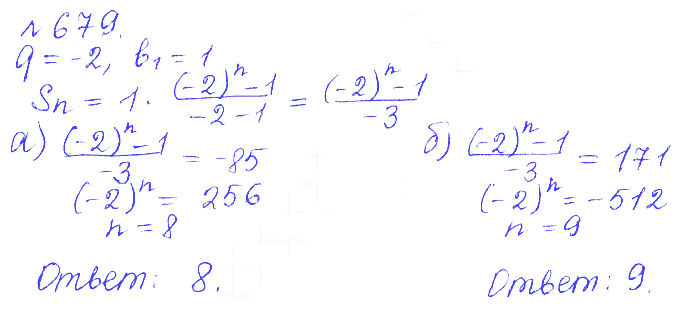 № 679.
q = -2, b₁ = 1
Sn = 1 · ((-2)ⁿ - 1)/(-2 - 1) = ((-2)ⁿ - 1)/(-3)
а) ((-2)ⁿ - 1)/(-3) = -85
(-2)ⁿ = 256
n = 8
Ответ: 8.
б) ((-2)ⁿ - 1)/(-3) = 171
(-2)ⁿ = -512
n = 9
Ответ: 9.